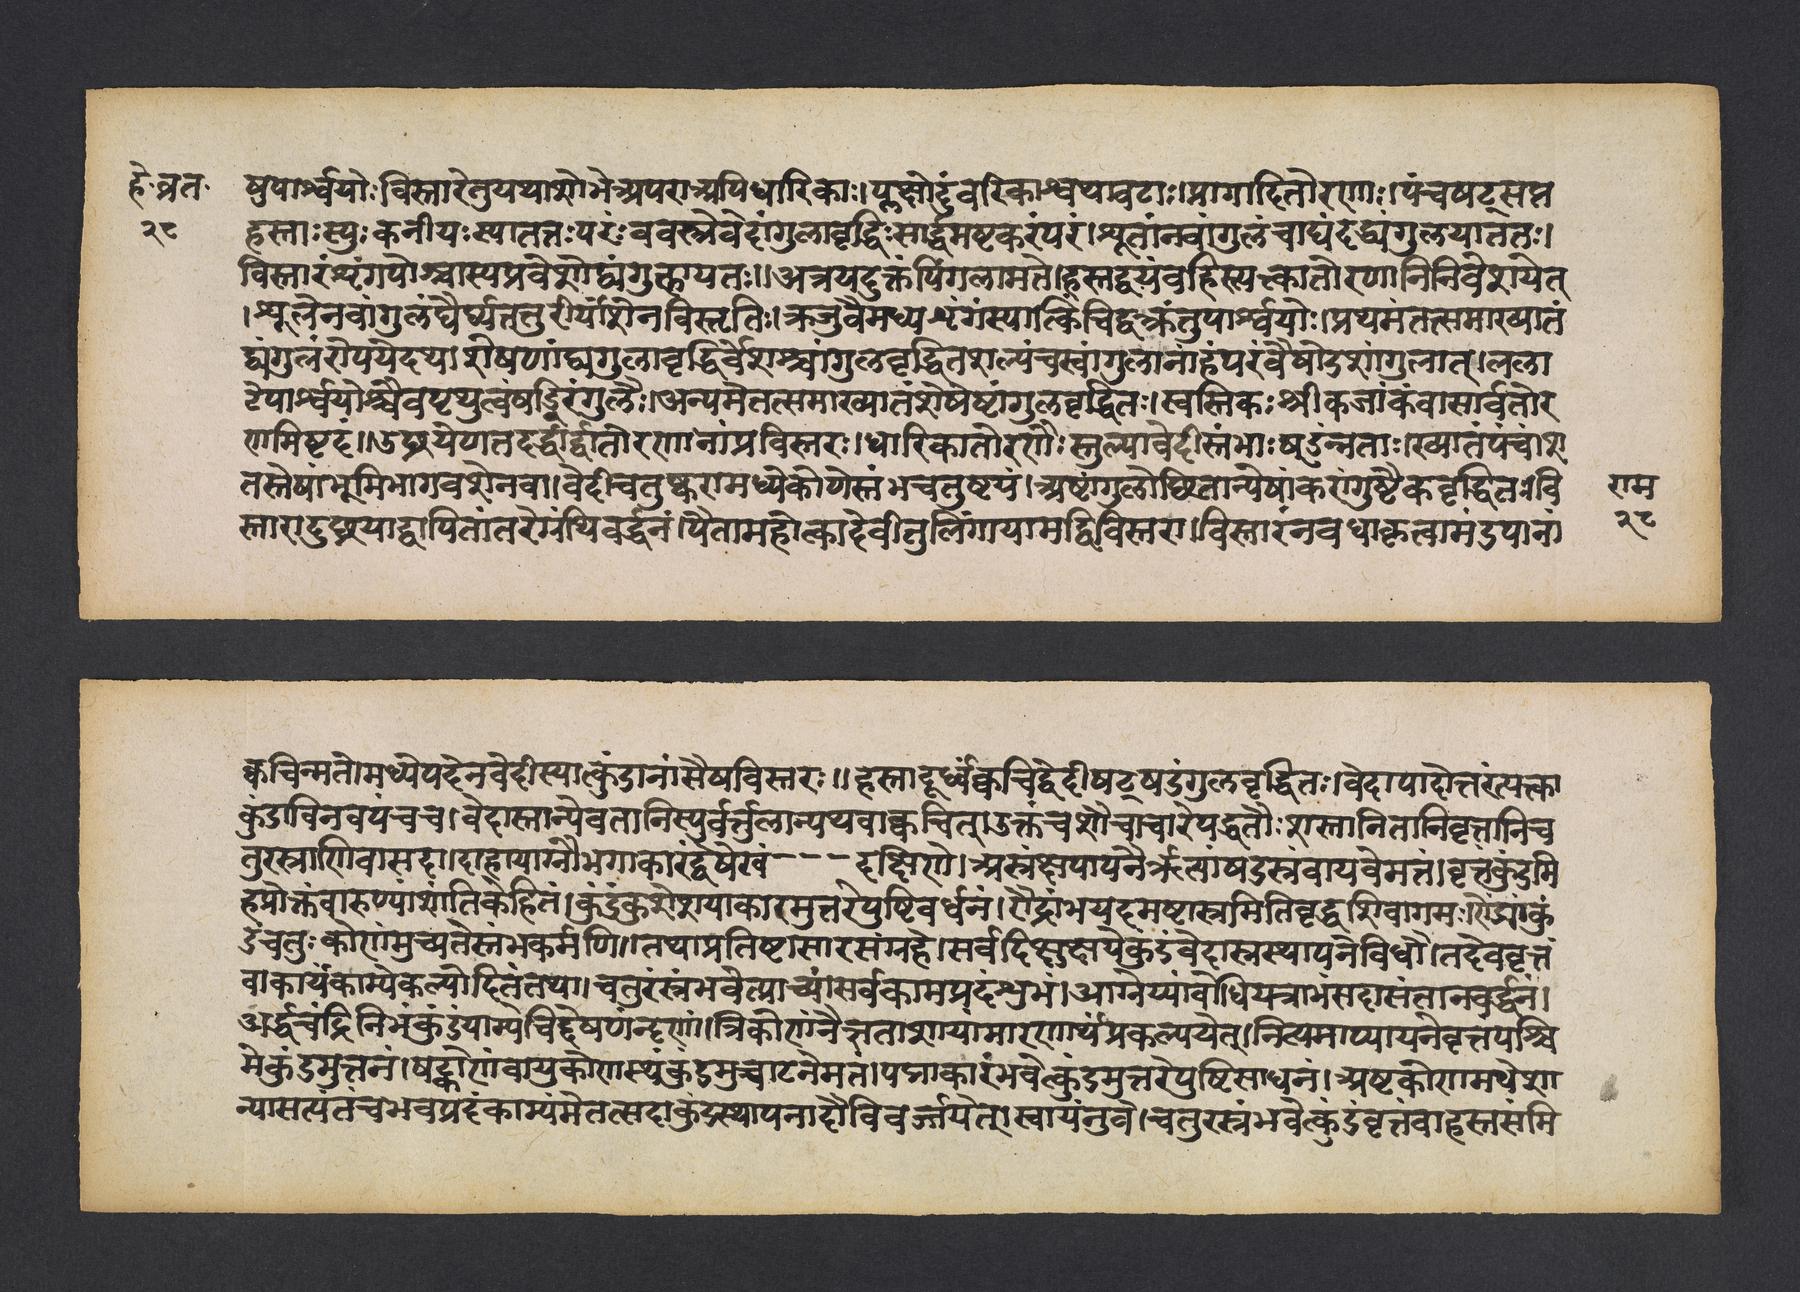 हे॰व्रत॰
२८
षुपार्श्वयोः विस्तारेतुयथाशोभेअपराअपिधारिकाः।प्लक्षोदुंबरिकाश्वथवटाः।प्रागादितोरणाः।पंचषट्सप्त
हस्ताःस्युःकनीयःस्यात्ततःपरं॰ववस्त्रैवेदांगुलावृद्धिःसार्द्धमष्टकरंपरं।शूलानवांगुलंचाद्यंदद्व्यंगुलयाततः।
विस्तारंशृंगयोश्चास्यप्रवेशोद्व्यंगुलायतः॥अत्रयदुक्तंपिंगलामते।हस्तद्वयंवहिस्त्यक्तातोरणानिनिवेशयेत्
।शूलेनवांगुलंदैर्घ्यंतत्तुरीयांशेनविस्तृतिः।ऋजुवैमध्यशृंगंस्यात्किंचिद्वक्रंतुपार्श्वयोः।प्रथमंतत्समाख्यातं
द्व्यंगुलंरोपयेदथ।शेषणांद्व्यगुलावृद्धिर्वेशश्चांगुलवृद्धितशल्यंचस्वांगुलानाहंपरंवैषोडशांगुलात्।लला
टेपार्श्वयोश्चैवपृथुत्वंषड्भिरंगुलैः।अन्यमेतत्समाख्यातंशेषेषष्टांगुलवृद्धितः।स्वस्तिकःश्रीकजांकंवासार्वतोर
णमिष्टदं॥उछ्रयेणतदर्द्धार्द्धातोरणानांप्रविस्तरः।धारिकातोरणैःस्तुल्यावेदीस्तंभाःषडुन्नताः।ख्यातंपंचांश
तस्तेषांभूमिभागवशेनवा।वेदीचतुष्करामध्येकोणेस्तंभचतुष्टयं।अष्टांगुलोछ्रितान्येषांकरांगुष्टैकवृद्धितः।वि
स्तारादुछ्रयाद्वापितांतरेग्रंथिवर्द्धनं।पैतामहोत्कादेवीतुलिंगायामद्विविस्तरा।विस्तारंनवधाकृत्वामंडपानां
राम
२८
क्वचिन्मते।मध्येपदेनवेदीस्यात्कुंडानांसैषविस्तरः॥हस्तादूर्ध्वंक्वचिद्वेदीषट्षडंगुलवृद्धितः।वेदापादोत्तरंत्यक्ता
कुंडाविनवपंचच।वेदास्तान्येवतानिस्युर्वर्तुलान्यथवाक्वचित्।उक्तंचशौचाचारेपद्धतौ।शस्तानितानिवृत्तानिच
तुरस्त्राणिवासदा।दाहायाग्नौभगाकारंद्वेषेखं---दक्षिणे।अस्त्रंक्षेपापनैरृत्यांषडस्त्रंवायवेमतं।वृत्तंकुंडमि
हप्रोक्तंवारुण्यांशांतिकेहितं।कुंडंकुशेशयाकारमुत्तरेपुष्टिवर्धनं।रौद्रांभयहमष्टास्त्रमितिवृद्धशिवागमःऽऐंद्र्यांकुं
डंचतुःकोणमुच्यतेस्तंभकर्मणि॥तथाप्रतिष्टासारसंग्रहे।सर्वदिक्षुक्षयेकुंडंवेदास्त्रस्थापनेविधौ।तदेववृत्तं
वाकार्यंकाम्येकल्पोहितंतथा।चतुरंस्त्रंभवेत्प्राच्यांसर्वकामप्रदंशुभं।आग्नेय्यांबोधिपत्राभंसदासंतानवर्द्धनं।
अर्द्धचंद्रनिभंकुंडंयाम्यचिद्वेषणंनृणां।त्रिकोणंनैऋताशायांमारणार्थंप्रकल्पयेत्।नित्यमाप्यायनेवृत्तपश्चि
मेकुंडमुत्तनं।षट्कोणंवायुकोणस्थंकुंडमुच्चाटनेमतं।पद्माकारंभवेत्कुंडमुत्तरेपुष्टिसाधनं।अष्टकोणमथेशा
न्यासत्यंतंचभवप्रदंकाम्यंमेतत्सदाकुंडंस्थापनादौविवर्ज्जयेत्।स्वायंनुवे।चतुरस्त्रंभवेत्कुंडंवृत्तंवाहस्तसंमि